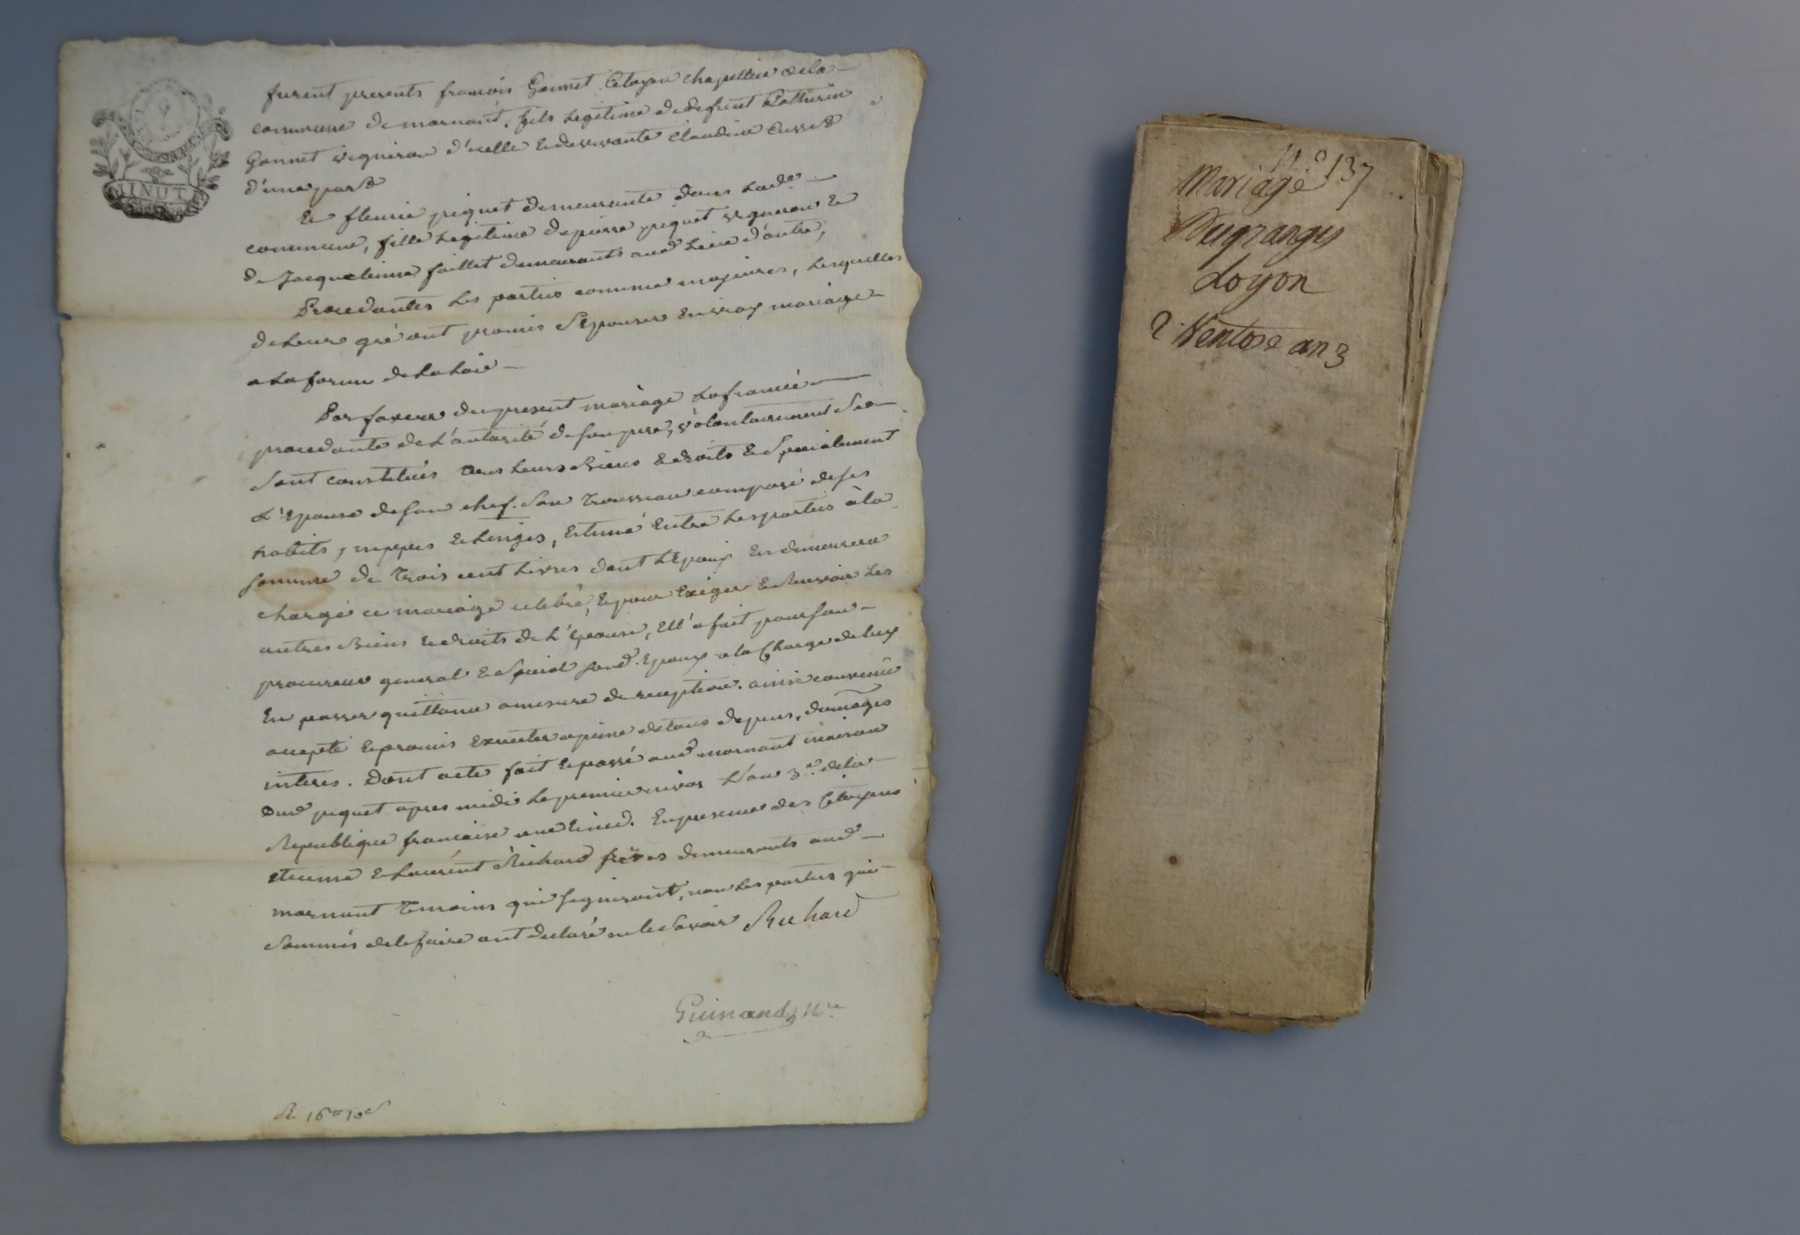 MINUT
furent presents francois Gonnet Citoyen chapellier de la
commune de mornant, fils Legitime de defunt Catherin
Gonnet vigniron d'icelle & de vivante Claudine
d'une part
Et fleurie piquet demeurante dans lade
commune, fille Legitime de pierre piquet vigneron &
de Jacquelinne faillet demeurants aud Lieu d'autre,
Procedantes Les parties comme majeures, Lesquelles
de Leurs gré ont promis S'Epouser En vray mariage
a La forme de La Loie
Par faveur du present mariage La fiancée
procedante de L'autorité de son pere, volontairement Se
Sont constitués tous Leurs Biens & droits & Specialement
L'Epouse de son chef. Son Trousseau composé de ses
habits, nippes & Linges, Estimé Entre Les parties à la
somme de Trois cent Livres dont L'Epoux En demeurera
chargé ce mariage celebré, & pour Exiger & Recevoir Les
autres Biens & droits de L'Epouse, Ell'a fait pour son
procureur general & Special sond. Epoux a la Charge de luy
En passer quittance a mesure de reception. ainsi convenu
accepté & promis Executer a peine de tous depens, domages
interes. Dont acte fait & passé aud mornant maison
Dud piquet apres midi Le premier nivos L'an 3e de la
Republique francaise une & ind. En presence des Citoyens
Etienne & Laurent Richard freres demeurants aud
mornant Temoins qui signeront, non Les parties qui
Sommés de le faire ont declaré ne le Savoir Richard
Guinand Nre
R 16 10
N.o 137
Mariage
Dugranges
Loyon
2 Ventose an 3